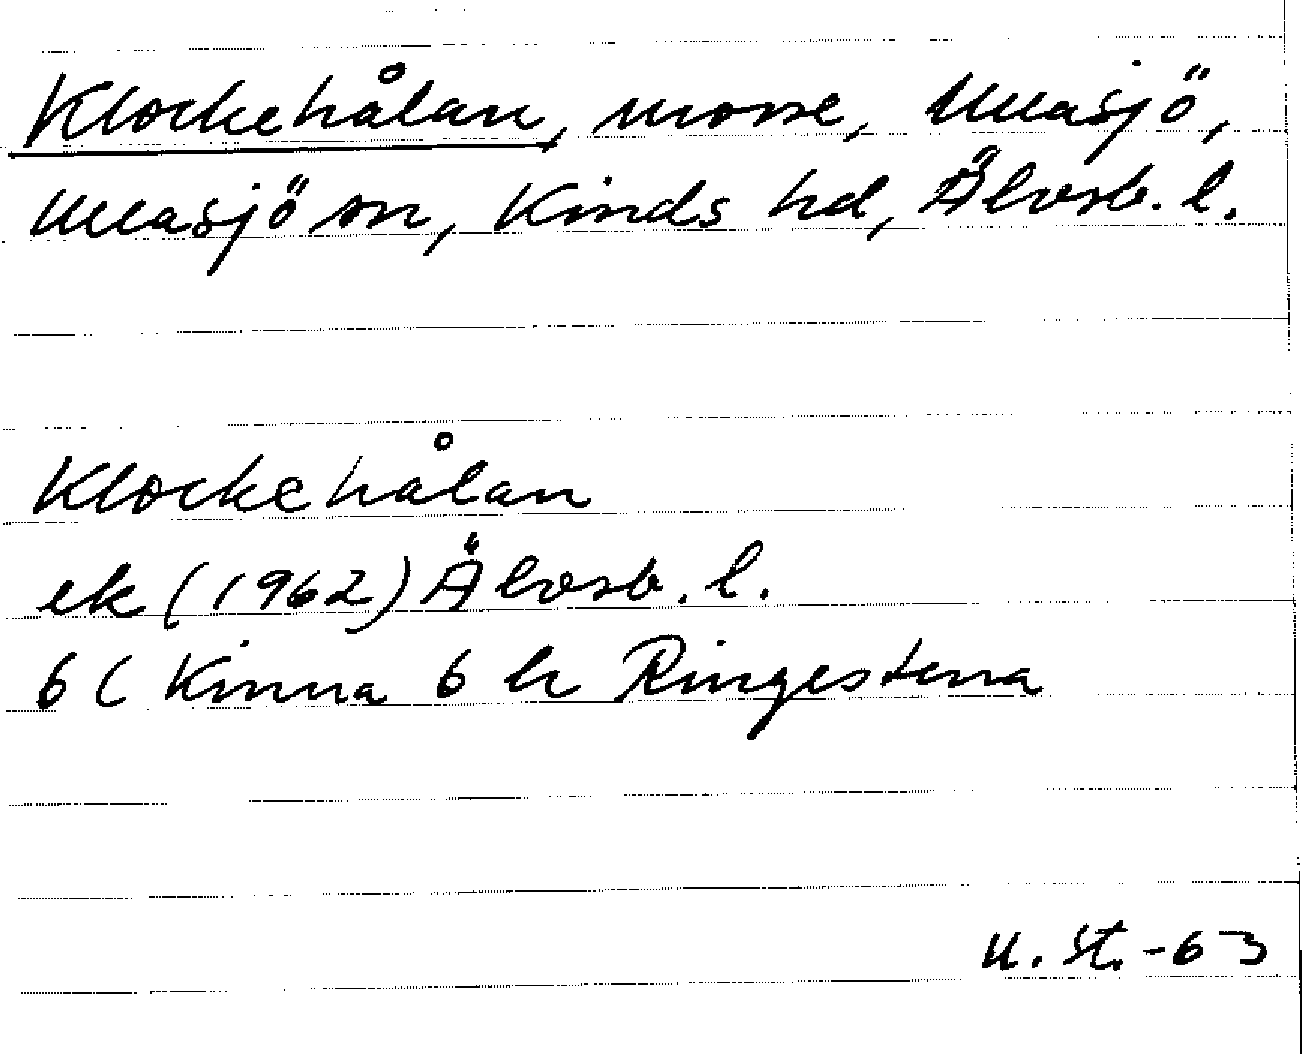 Klockehålan, mosse, Ullasjö,
Ullasjö sn, Kinds hd, Älvsb. l.
Klockehålan
ek (1962) Älvsb. l.
6 C Kinna 6 h Ringestena
U. St. -63